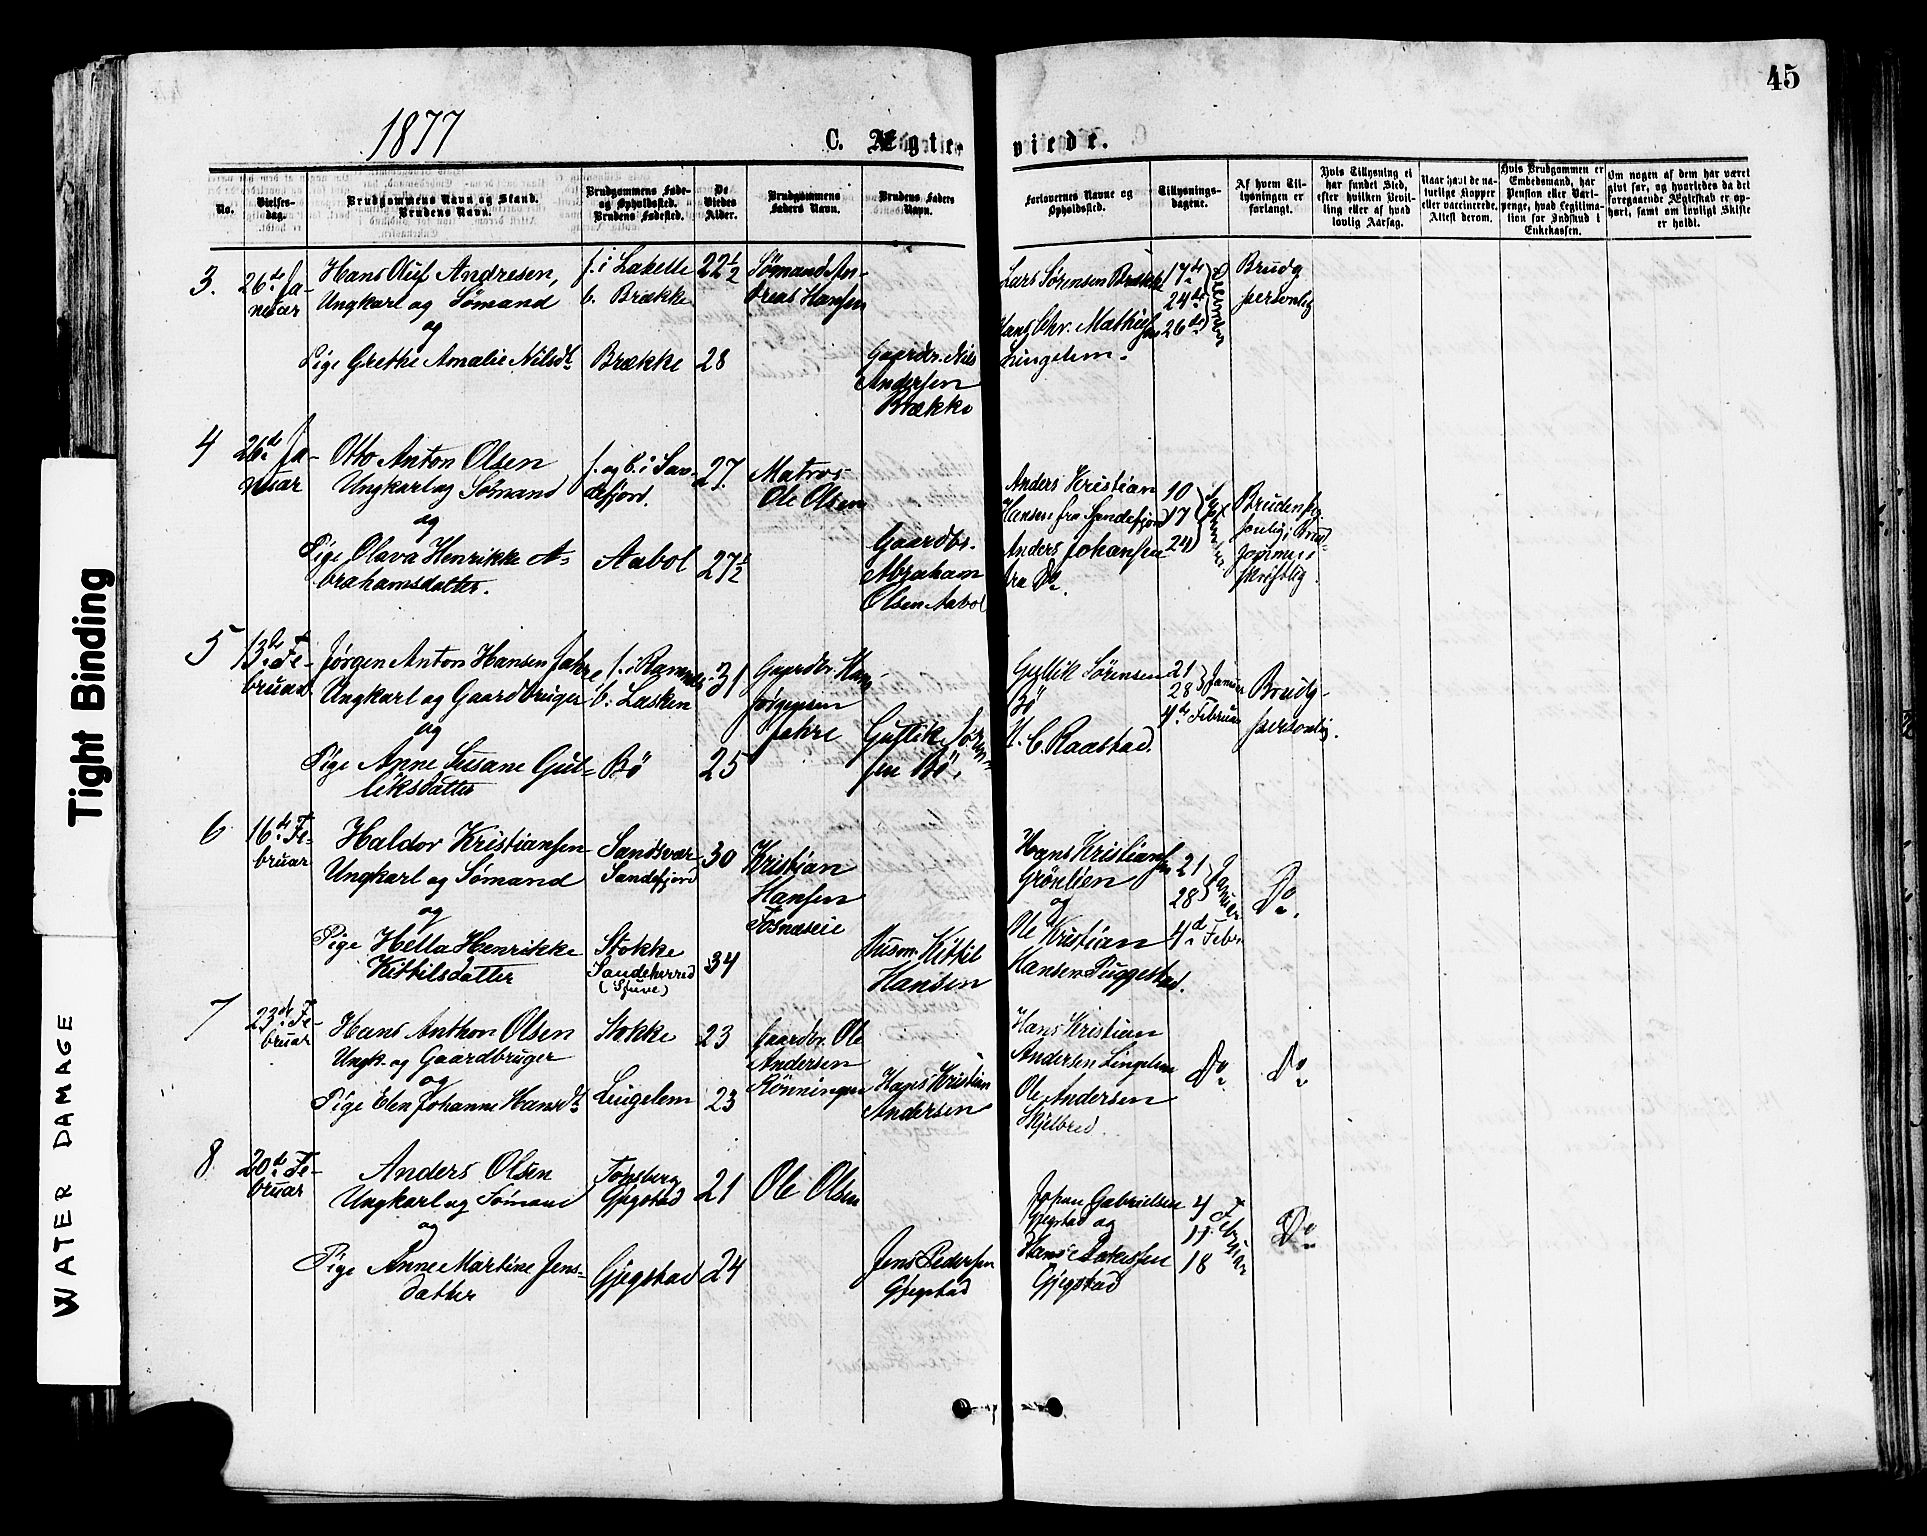 45
1877
C. Ægte
viede.
No.
Vielses-
dag.
Brudgommens Navn og Stand.
Brudens Navn.
Brudgommens Føde-
og Opholdsted.
Brudens Fødested.
De
Viedes
Alder.
Brudgommens
Faders Navn.
Brudens Faders
Navn.
Forlovernes Navne og
Opholdsted.
Tillysnings-
dagene.
Af hvem Til-
lysningen er
forlangt.
Hvis Tillysning ei
har fundet Sted,
efter hvilken Bevil-
ling eller af hvad
lovlig Aarsag.
Naar havt de na-
turlige Kopper
eller vaccinerede.
Attest derom.
Hvis Brudgommen er
Embedsmand, har
Pension eller Vart-
penge, hvad Legitima-
tion for Indskud i
Enkekassen.
Om nogen af dem har været
gift før, og hvorledes da det
foregaaende Ægteskab er op-
hørt, samt om lovligt Skifte
er holdt.
3.
26de Ja-
nuar
Hans Oluf Andresen,
Ungkarl og Sömand
og
Pige Grethe Amalie Nilsdt.
f. i Lakelle
b. Brække
Brække
22½
28
Sømand An-
dreas Hansen
Gaardbr. Nils
Andersen
Brække
Lars Sörensen Brække
Hans Chr. Mathiessen
Lingelem.
17de
24de
26de
December
Brudg
personlig
4
26de Ja-
nuar
Otto Anton Olsen
Ungkarl og Sömand
og
Pige Olava Henrikke A-
brahamsdatter.
f. og b. i San-
defjord.
Aabol
27
27½
Matros
Ole Olsen
Gaardbr.
Abraham
Olsen Aabol
Anders Kristian
Hansen fra Sandefjord
Anders Johansen
fra Do.
10
17
24
Bruden per-
sonlig, Brud-
gommen
skriftlig.
5
13de Fe-
bruar
Jörgen Anton Hansen Jahre
Ungkarl og Gaardbruger
og
Pige Anne Susane Gul-
liksdatter
f. i Ramnæs
b. Lasken
Bö
31
25
Gaardbr. Hans
Jörgensen
Jahre
Gullik Sören-
sen Bö.
Gullik Sörensen
Bö
H. C. Raastad.
21
28
Januar
4de Februar
Brudg-
personlig.
6
16de Fe-
bruar
Haldor Kristiansen
Ungkarl og Sömand
og
Pige Hella Henrikke
Kittilsdatter
Sandsvær
Sandefjord
Stokke
Sandeherred
(Stuve)
30
34
Kristian
Hansen
Fosnæseie
Husm. Kittil
Hansen
Hans Kristiansen
Grönlien
og
Ole Kristian
Hansen Puggestad.
21
28
Januar
4de Febr.
Do.
7
23de Fe-
bruar
Hans Anthon Olsen
Ungk. og Gaardbruger
og
Pige Elen Johanne Hansdt.
Stokke
Lingelem
23
23
Gaardbr. Ole
Andersen
Rönningen
Hans Kristian
Andersen
Hans Kristian
Andersen Lingelem
Ole Andersen
Skjelbred.
Do.
Do.
8
20de Fe-
bruar
Anders Olsen
Ungkarl og Sömand
og
Pige Anne Martine Jens-
datter
Tönsberg
Gjegstad
Gjegstad
21
24
Ole Olsen
Jens Pedersen
Gjegstad
Johan Gabrielsen
Gjegstad og
Hans
Gjegstad
4
11
18
Februar
Do.
Tight Binding
WATER DAMAGE